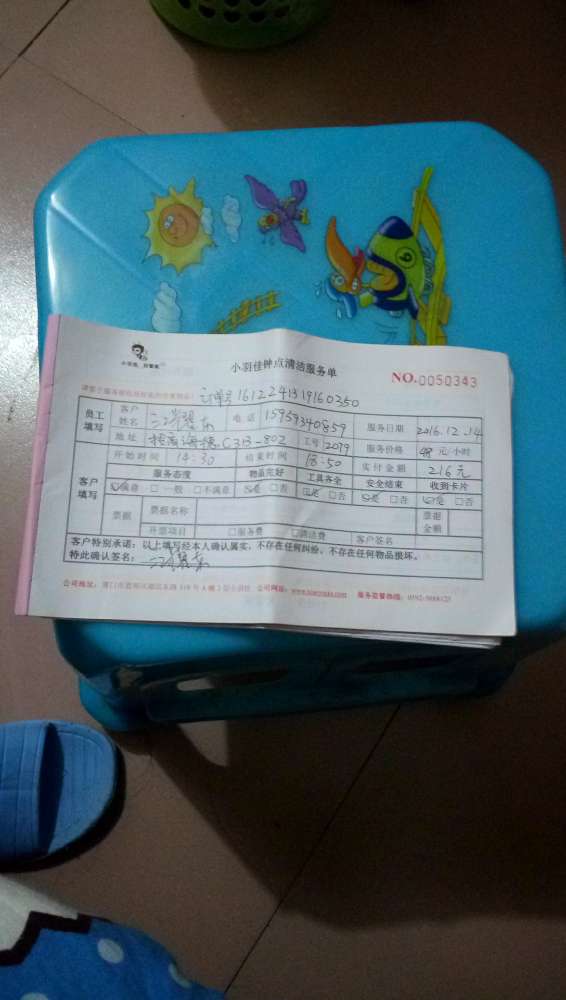 小羽佳钟点清洁服务单
NO.0050343
订单号1612241319160350
员工填写 客户姓名 电话 15959340859 服务日期 2016.12.14
地址 C313-802 工号 2099 服务价格 元/小时
开始时间 14:30 结束时间 18:50 实付金额 216元
客户填写 服务态度 物品完好 工具齐全 安全结束 收到卡片
满意 □一般 □不满意 是 □否 是 □否 是 □否 是 □否
票据 票据名称 票据金额
开票项目 □服务费 □清洁费 客户签名
客户特别承诺:以上填写经本人确认属实,不存在任何纠纷,不存在任何物品损坏。
特此确认签名:
公司地址: 公司网址: 服务监督热线:
9